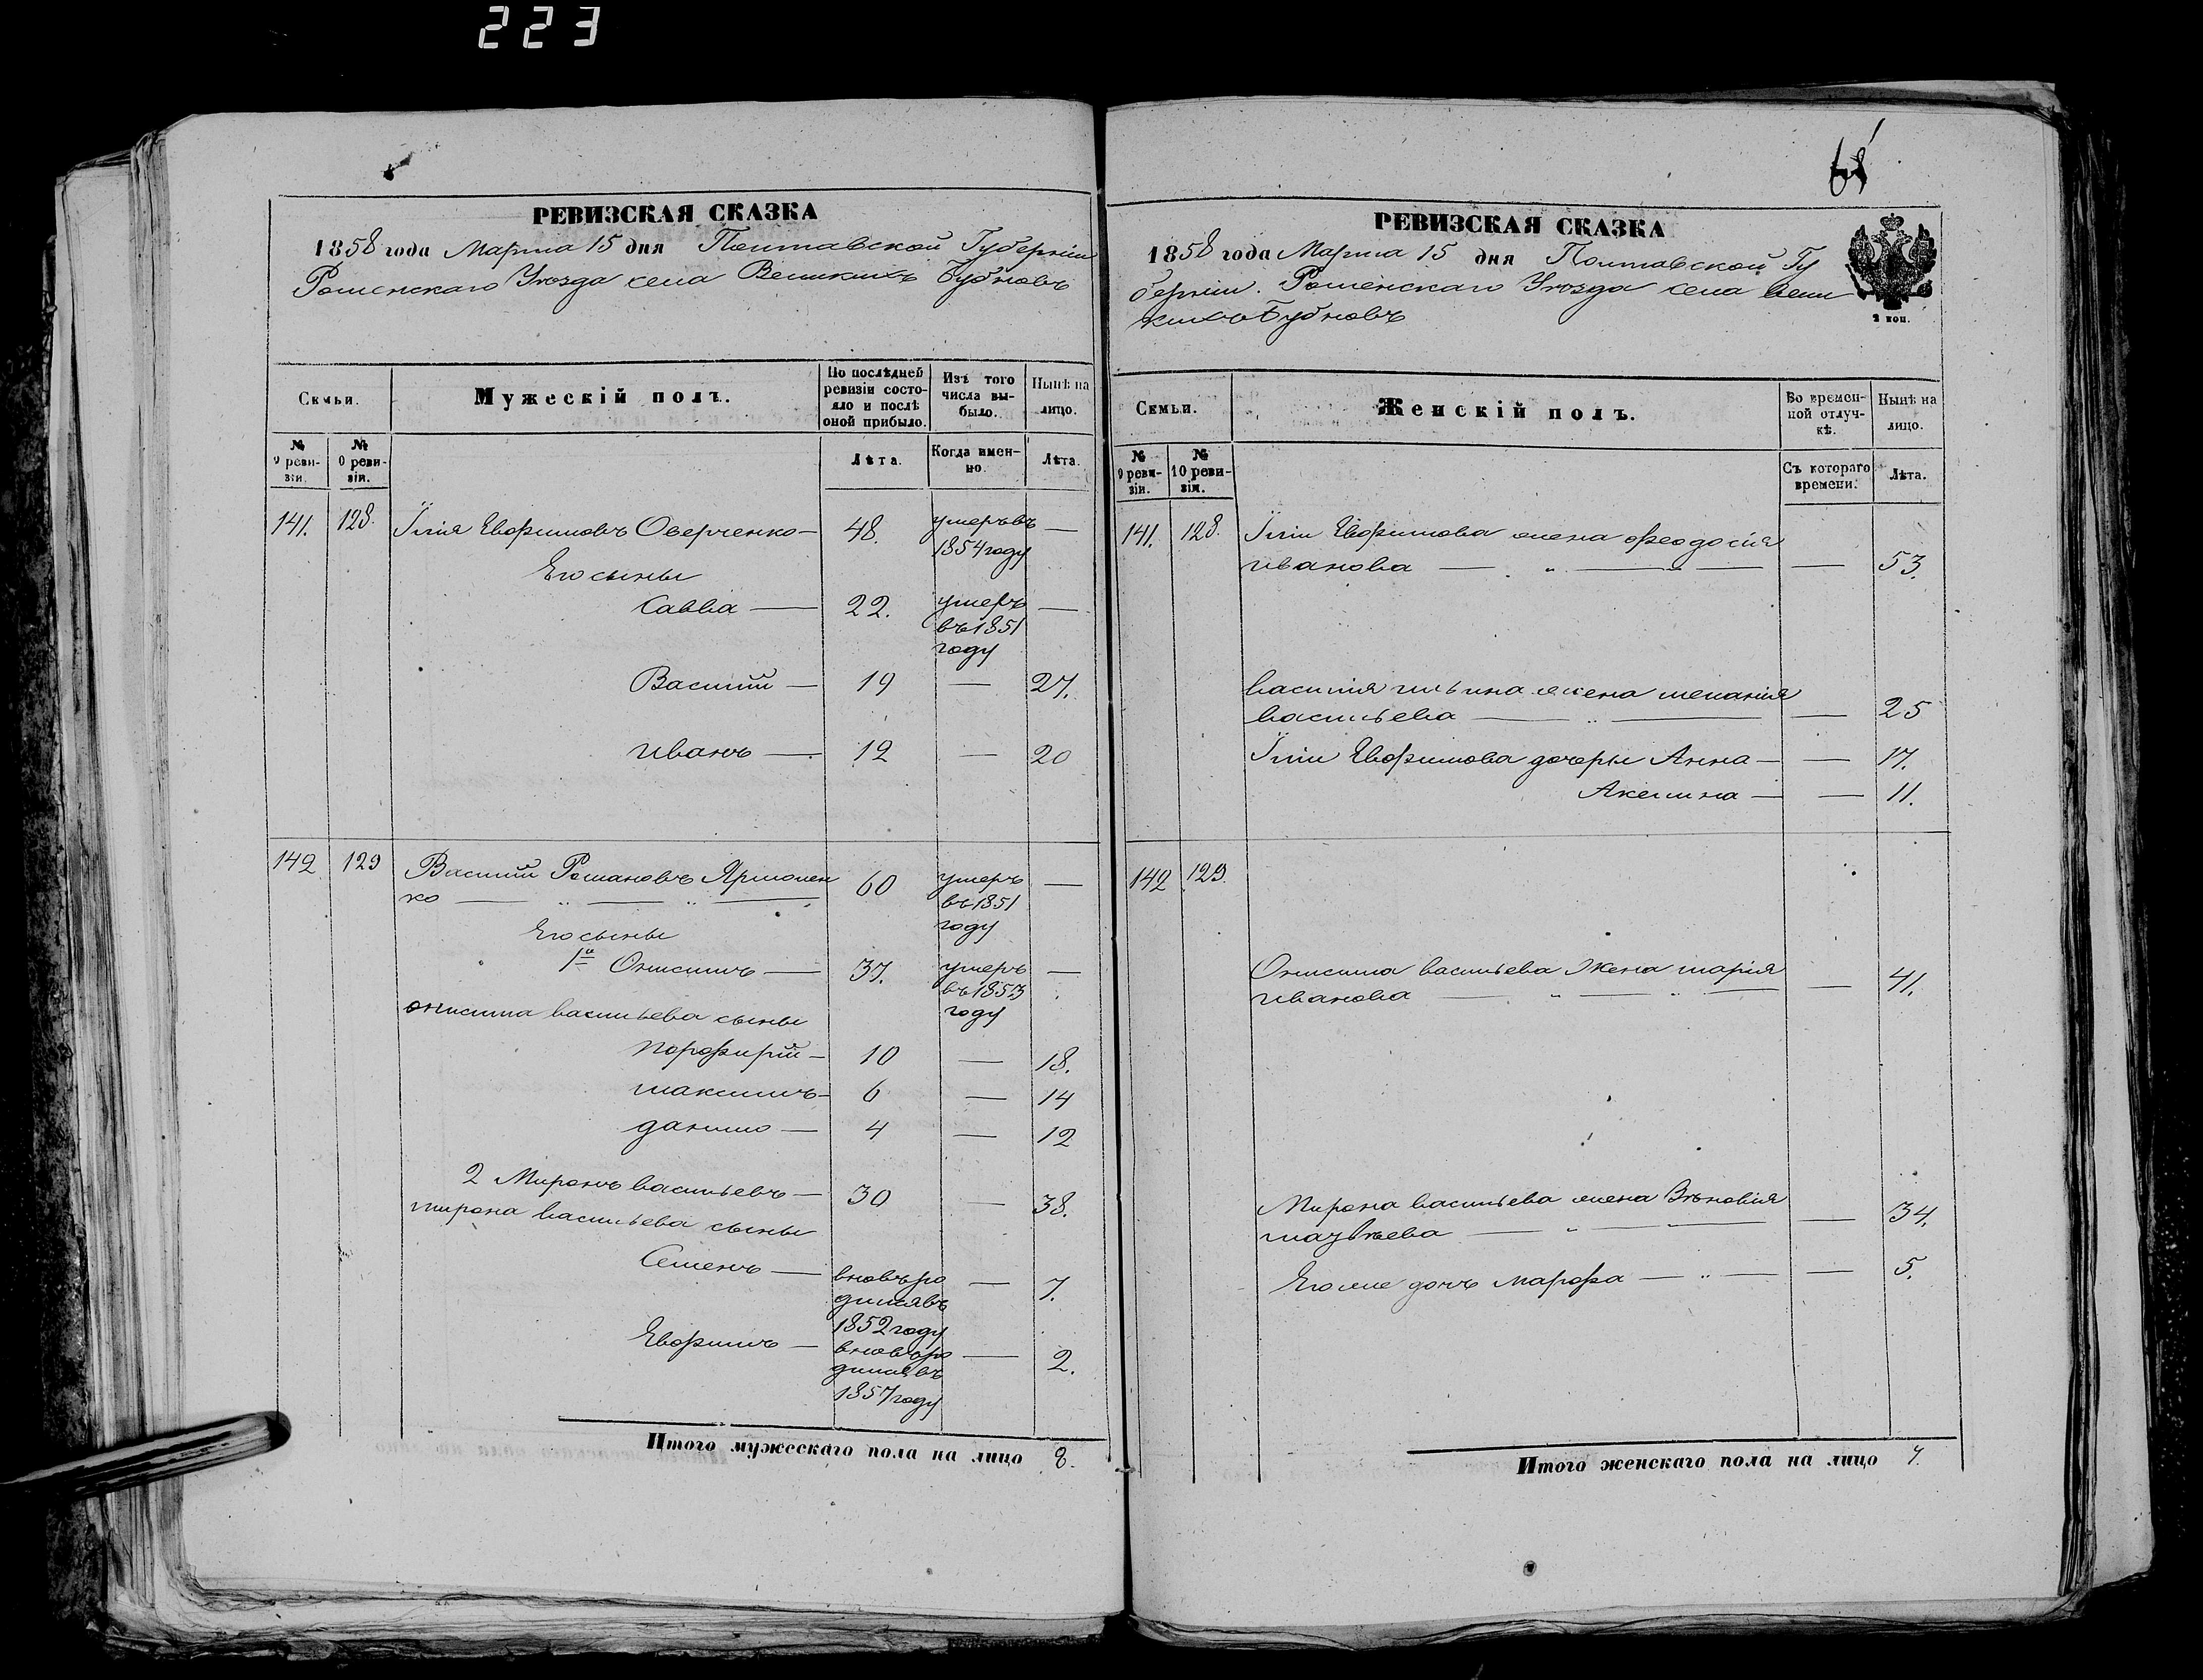 223
РЕВИЗСКАЯ СКАЗКА
1858 года Марта 15 дня Полтавской Губерніи
Роменскаго Уѣзда села Великихъ Бубновъ
Семьи.
Мужескій полъ.
По послѣдней ревизіи состояло и послѣ оной прибыло.
Изъ того числа выбыло.
Нынѣ на лицо.
№ 9 ревизіи.
№ 0 ревизіи.
Лѣта.
Когда именно.
Лѣта.
141. 128. Їлія Евфимовъ Оверченко — 48. умеръ въ 1854 году —
Его сыны
Савва — 22. умеръ въ 1851 году —
Василій — 19 — 27.
иванъ — 12 — 20
142 129 Василій Романовъ Ярмолен
ко — 60 умеръ въ 1851 году —
Его сыны
1й Онисимъ — 37. умеръ въ 1853 году —
онисима васильева сыны
порфирій — 10 — 18.
максимъ — 6 — 14
данило — 4 — 12
2 Миронъ васильевъ — 30 — 38.
мирона васильева сыны
Семенъ — вновь ро
дился въ
1852 году — 7.
Евфимъ — вновь ро
дился въ
1857 году — 2.
Итого мужескаго пола на лицо 8.
РЕВИЗСКАЯ СКАЗКА
1858 года Марта 15 дня Полтавской Гу
берніи. Роменскаго Уѣзда села Вели
кихъ Бубновъ
2 коп.
Семьи.
Женскій полъ.
Во временной отлучкѣ.
Нынѣ на лицо.
№ 9 ревизіи.
№ 10 ревизіи.
Съ котораго времени.
Лѣта.
141. 128. Їліи Евфимова жена феодосія
иванова — — 53.
василія ильина жена меланія
васильева — — 25
Їліи Евфимова дочеры Анна — — 17.
Акелина — — 11.
142 129.
Онисима васильева Жена марія
иванова — — 41.
Мирона васильева жена Зѣновія
матвѣева — — 34.
Его же дочъ марфа — — 5.
Итого женскаго пола на лицо 7.